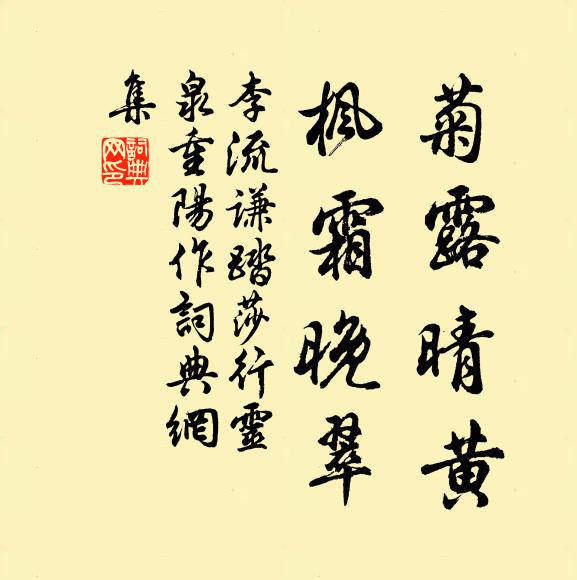 菊露晴黄
枫霜晚翠
李流谦踏莎行靈
泉重陽作詞典網
集
詞典
网印